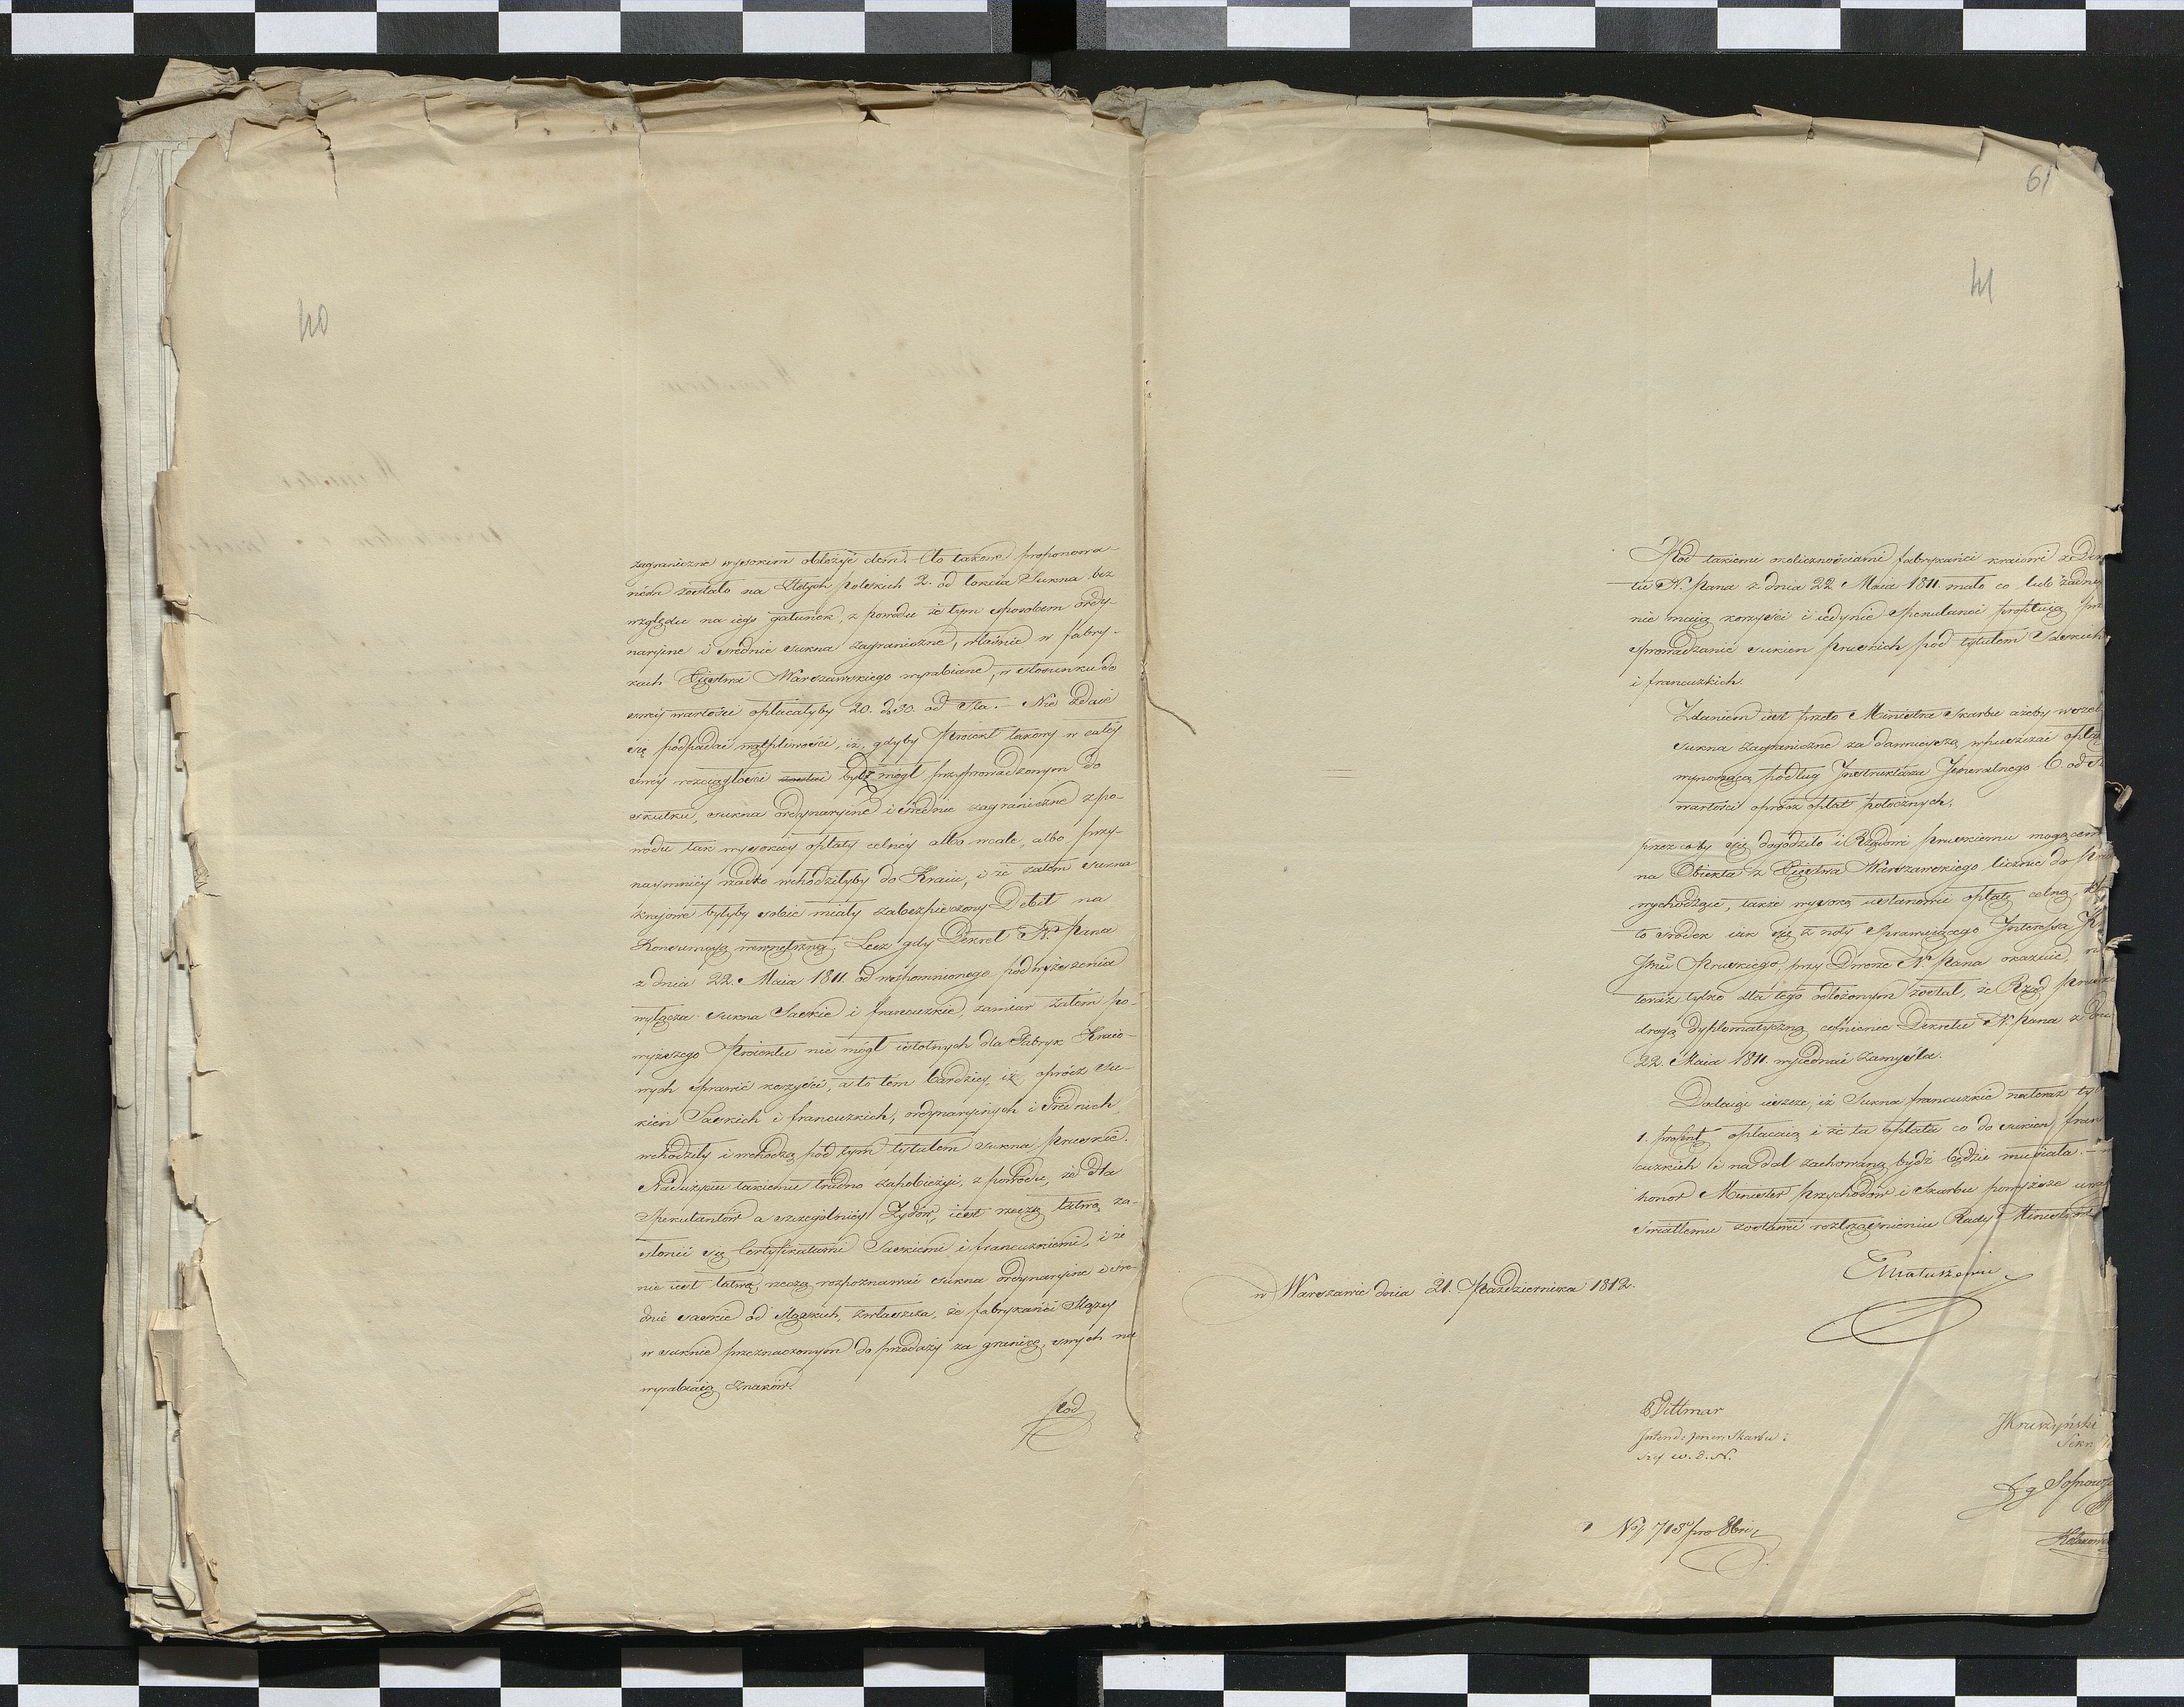 40
zagraniczne wysokiem obłożyć cłem. Cło takowe proponowa-
ném zostało na Złotych polskich 2. od łokcia Sukna bez
względu na iego gatunek, z powodu że tym sposobem ordy-
naryine i srednie sukna zagraniczne, właśnie w fabry-
kach Xięstwa Warszawskiego wyrabiane, w stosunku do
swéy wartości opłacałyby 20. do 30. od Sta. – Nie zdaie
się podpadać wątpliwości, iż, gdyby Proiekt takowy w całéy
swéy rozciągłości bydź mógł przyprowadzonym do
skutku, sukna ordynaryine i srednie zagraniczne z po-
wodu tak wysokiey opłaty celnéy albo wcale, albo przy-
naymniéy rzadko wchodziłyby do Kraiu, i że zatem sukna
krajowe byłyby sobie miały zabezpieczony Debit na
Konsumcyą wewnętrzną. Lecz gdy Dekret N. Pana
z dnia 22. Maia 1811. od wspomnionego podwyższenia
wyłącza sukna Saskie i francuzkie, zamiar zatém po-
wyższego Proiektu nie mógł istotnych dla Fabryk Kraio-
wych sprawić korzyści, a to tém bardziey, iż oprócz su-
kien Saskich i francuzkich, ordynaryinych i srednich
wchodziły i wchodzą pod tym tytułem sukna Pruskie.
Nadużyciu takiemu trudno zapobieżyć, z powodu, że dla
Spekulantów a szczególniéy Żydów, iest rzeczą łatwą za-
słonić się Certyfikatami Saskiemi i francuzkiemi, i że
nie iest łatwą rzeczą rozpoznawać sukna ordynaryine i śre-
dnie saskie od śląskich, zwłaszcza, że fabrykańci śląscy
w suknie przeznaczonym do przedaży za granicę, swych nie
wyrabiaią znaków.
Pod
61
41
Pod takiemi okolicznościami fabrykańci kraiowi z Dek
tu N. Pana z dnia 22 Maia 1811. mało co lub żadney
nie maią korzyści i iedynie Spekulanci profituią prz
sprowadzanie sukien Pruskich pod tytułem Saskich
i francuzkich.
Zdaniem iest przeto Ministra Skarbu ażeby wszel
sukna zagraniczne za dawnieyszą wpuszczać opłatą
wynoszącą podług Instruktarza Jeneralnego 6. od St
wartości oprócz opłat pobocznych,
przez co by się dogodziło i Rządowi Pruskiemu mogącem
na Obiekta z Xięstwa Warszawskiego liczne do Prus
wychodzące, także wysoką ustanowić opłatę celną
to srodek iak się z noty Sprawuiącego Interessa K
Jmci Pruskiego, przy Dworze N. Pana okazuie,
teraz tylko dla tego odłożonym został, że Rząd Prusk
drogą dyplomatyczną cofnienie Dekretu N. Pana z dnia
22. Maia 1811. wyiednać zamyśla.
Dodaiąc ieszcze, iż Sukna francuzkie na teraz tyl
1. procent opłacaią i że ta opłata co do sukien fran
cuzkich i nadal zachowaną bydź będzie musiała. –
honor Minister Przychodów i Skarbu powyższe uwa
swiatłemu zostawić roztrząśnieniu Rady Ministrów
w Warszawie dnia 21. Października 1812.
Matuszewic
Dittmar
Intend: Jener: Skarbu
Szef w. d. N.
JKruszyński
Sekr
No 715 pro 8bri